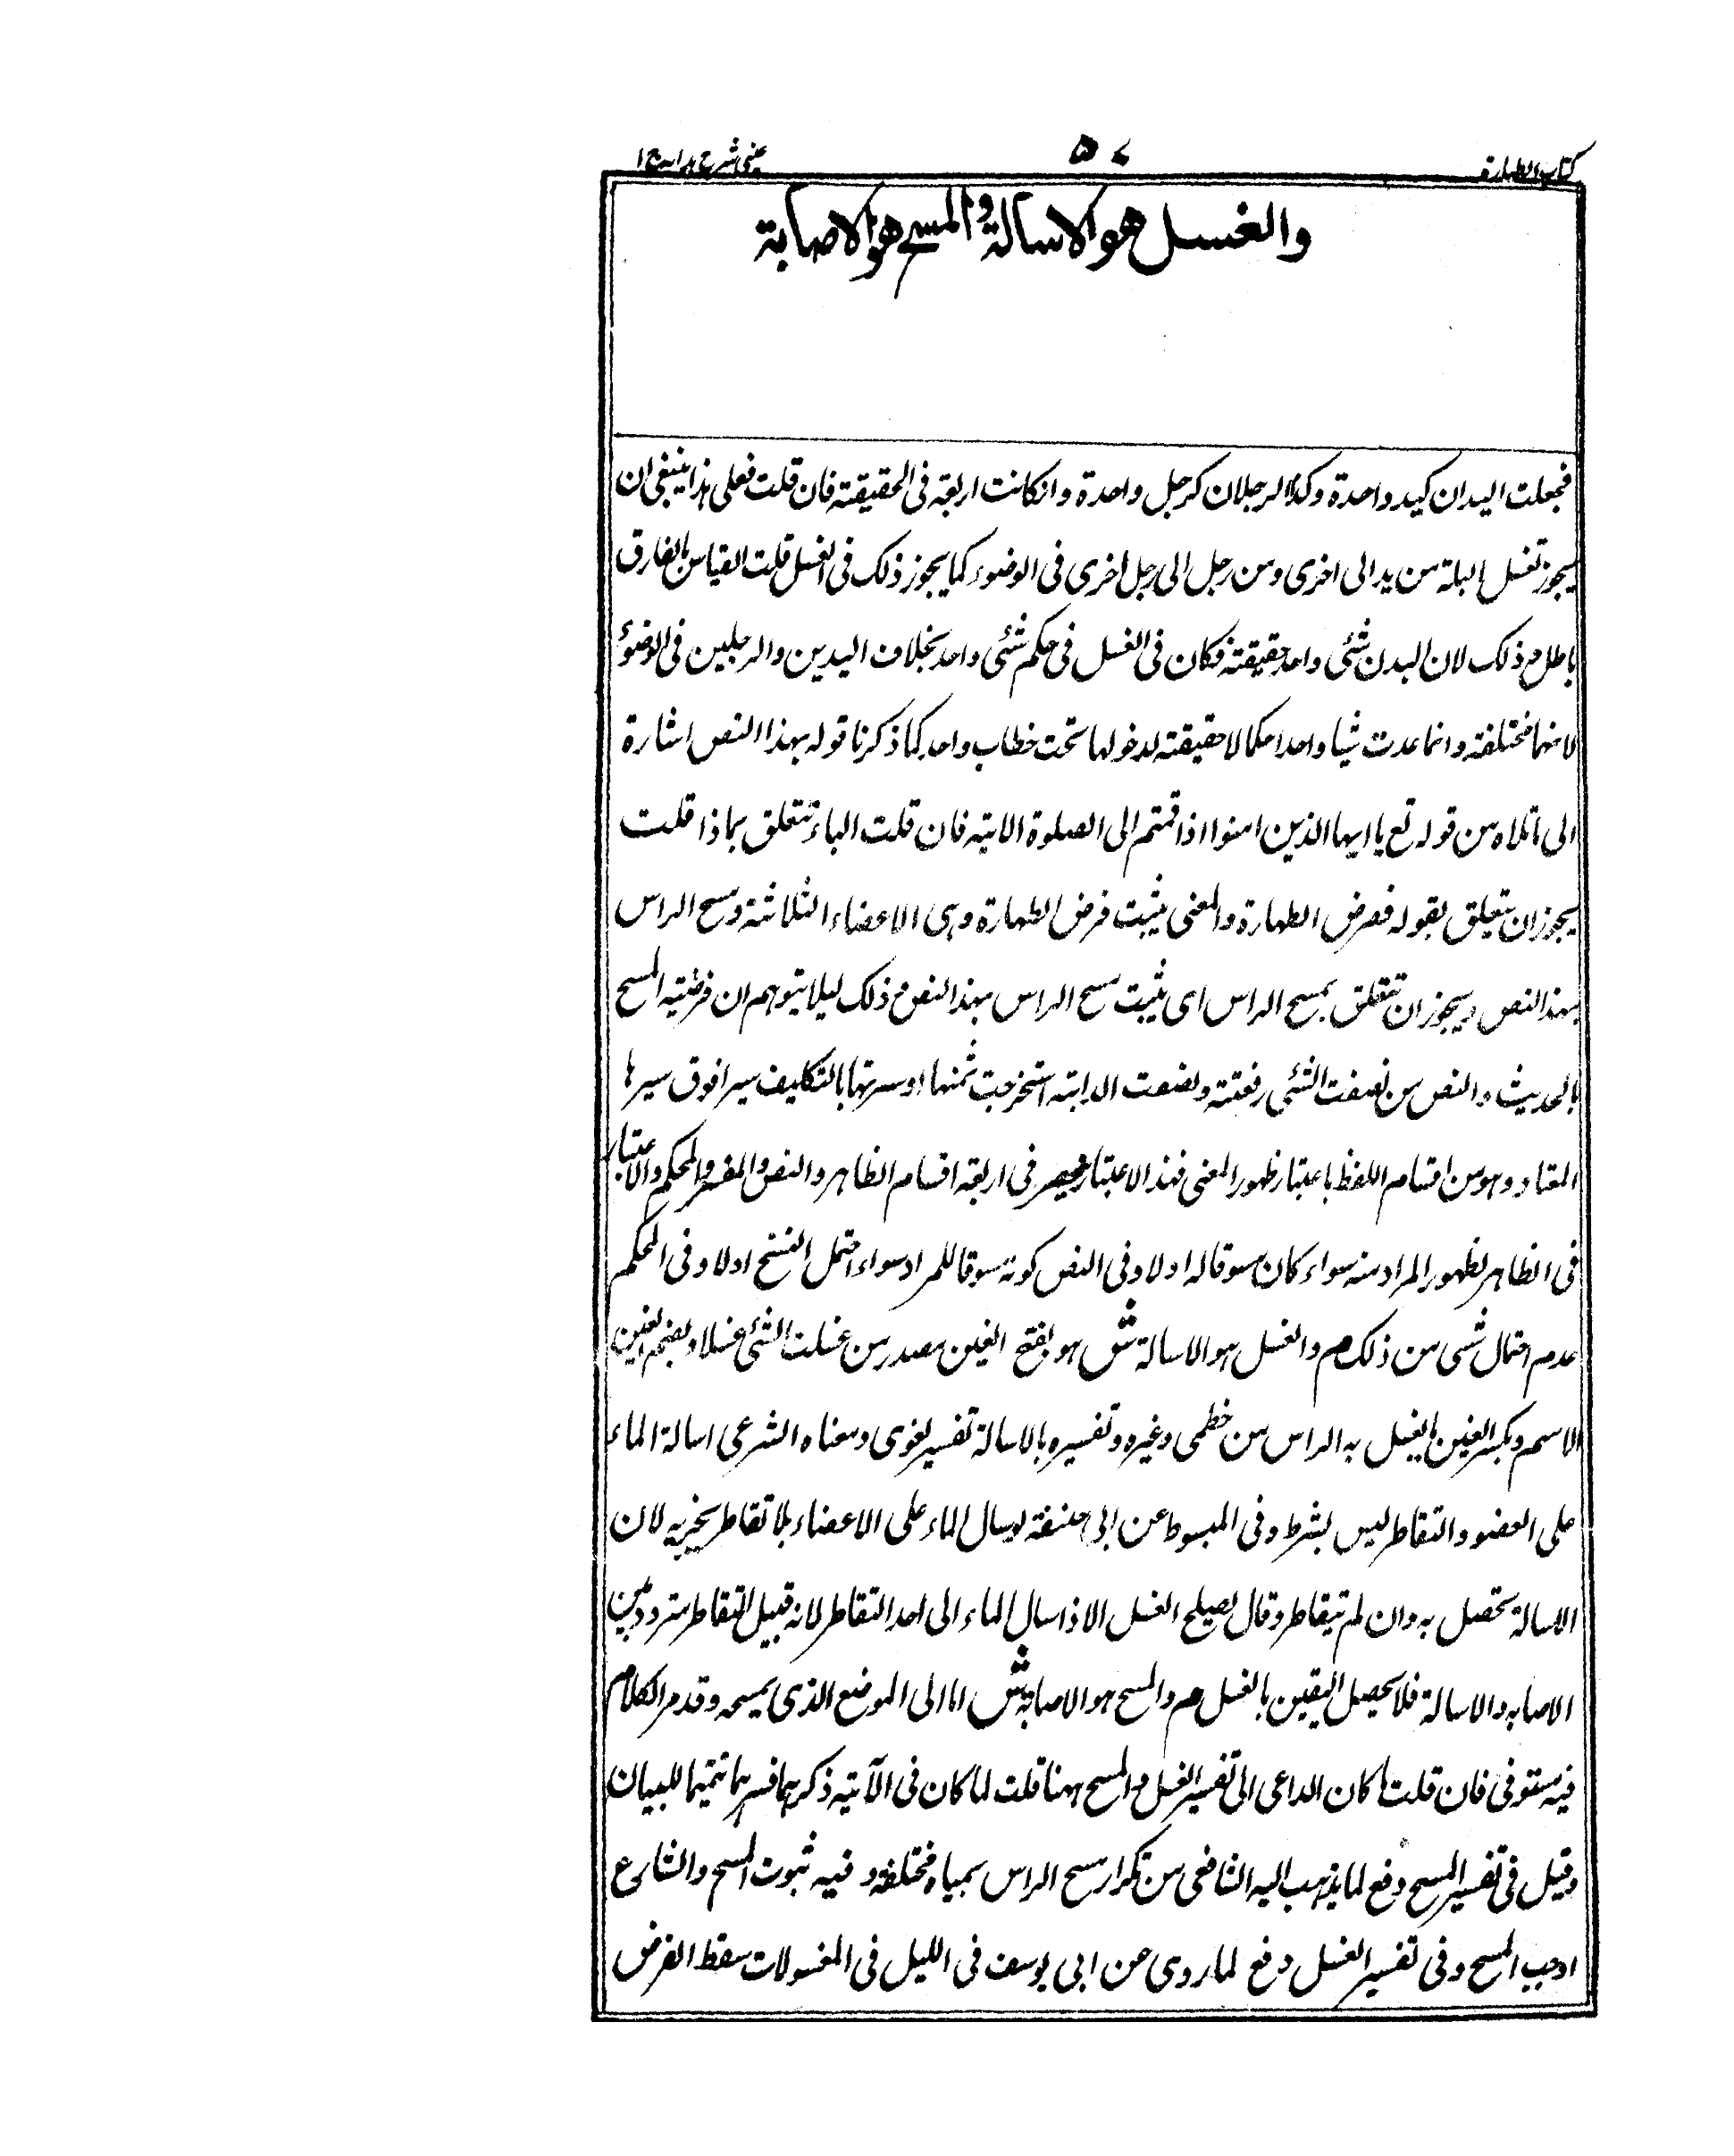 كتاب الطهارة
٥٧
عيني شرح هدايه ج ١
والغسل هو الاسالة والمسح هو الاصابة
فجعلت اليدان كيد واحدة وكذا الرجلان كرجل واحدة وانكانت اربعة فى الحقيقة فان قلت فعلى هذا ينبغى ان
يجوز تغسل البلة من يد الى اخرى ومن رجل الى رجل اخرى فى الوضوء كما يجوز ذلك فى الغسل قلت القياس بالفارق
باطل وذلك لان البدن شئى واحد حقيقة فكان فى الغسل فى حكم شئى واحد بخلاف اليدين والرجلين فى الوضوئ
لانهما مختلفة وانما عدت شيا واحدا حكما لا حقيقة لدخولها تحت خطاب واحد كما ذكرنا قوله بهذا النص اشارة
الى ماتلاه من قوله تع يا ايها الذين امنوا اذا قمتم الى الصلوة الاية فان قلت الباء تتعلق بماذا قلت
يجوز ان يتعلق بقوله ففرض الطهارة والمعنى يثبت فرض الطهارة وهى الاعضاء الثلاثة ومسح الراس
بهذا النص ويجوز ان تتعلق بمسح الراس اى يثبت مسح الراس بهذا النص وذلك ليلا يتوهم ان فرضية المسح
بالحديث والنص من نصصت الشئى رفعته ونصصت الدابة استخرجت ثمنها او سرتها بالتكليف سيرا فوق سيرها
المعتاد وهو من اقسام اللفظ باعتبار ظهور المعنى فهذا الاعتبار منحصر فى اربعة اقسام الظاهر والنص والمفسر والمحكم والاعتبار
فى الظاهر بظهور المراد منه سواء كان مسوقا له اولا وفى النص كونه مسوقا للمراد سواء احتمل النسخ اولا وفى المحكم
عدم احتمال شى من ذلك م والغسل هو الاسالة ش هو بفتح الغين مصدر من غسلت الشئى غسلا وبضم الغين
الاسم وبكسر الغين مايغسل به الراس من خطمى وغيره وتفسيره بالاسالة تفسير لغوى ومعناه الشرعى اسالة الماء
على العضو والتقاطر ليس بشرط وفى المبسوط عن ابى حنيفة لو سال الماء على الاعضاء بلا تقاطر يجزيه لان
الاسالة تحصل به وان لم يتقاطر وقال لا يصلح الغسل الا اذا سال الماء الى احد التقاطر لانه قبيل التقاطر متردد بين
الاصابه والاسالة فلا يحصل اليقين بالغسل م والمسح هو الاصابة ش اما الى الموضع الذى يمسحه وقد مر الكلام
فيه مستوفى فان قلت ما كان الداعى الى تفسير الغسل والمسح ههنا قلت لما كان فى الآية ذكرهما فسرهما تتميما للبيان
وقيل فى تفسير المسح دفع لما يذهب اليه الشافعى من تكرار مسح الراس بمياه مختلفة وفيه ثبوت المسح والشارع
اوجب المسح وفى تفسير الغسل دفع لما روى عن ابى يوسف فى الليل فى المغسولات سقط الفرض